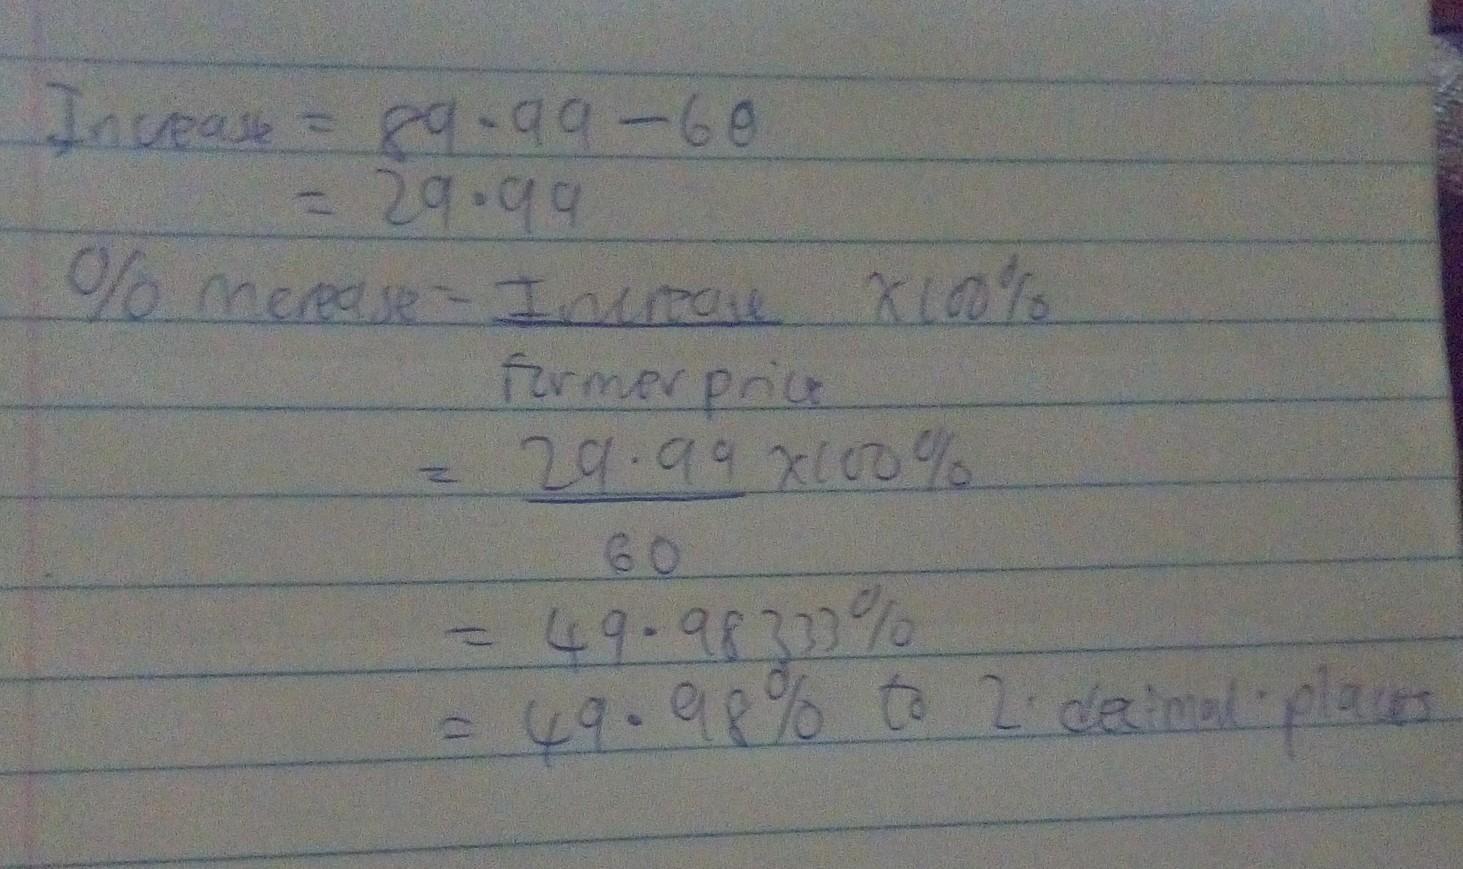 Increase = 89.99 - 60
= 29.99
% increase = Increase x100%
former price
= 29.99 x100%
60
= 49.98333%
= 49.98% to 2 decimal places